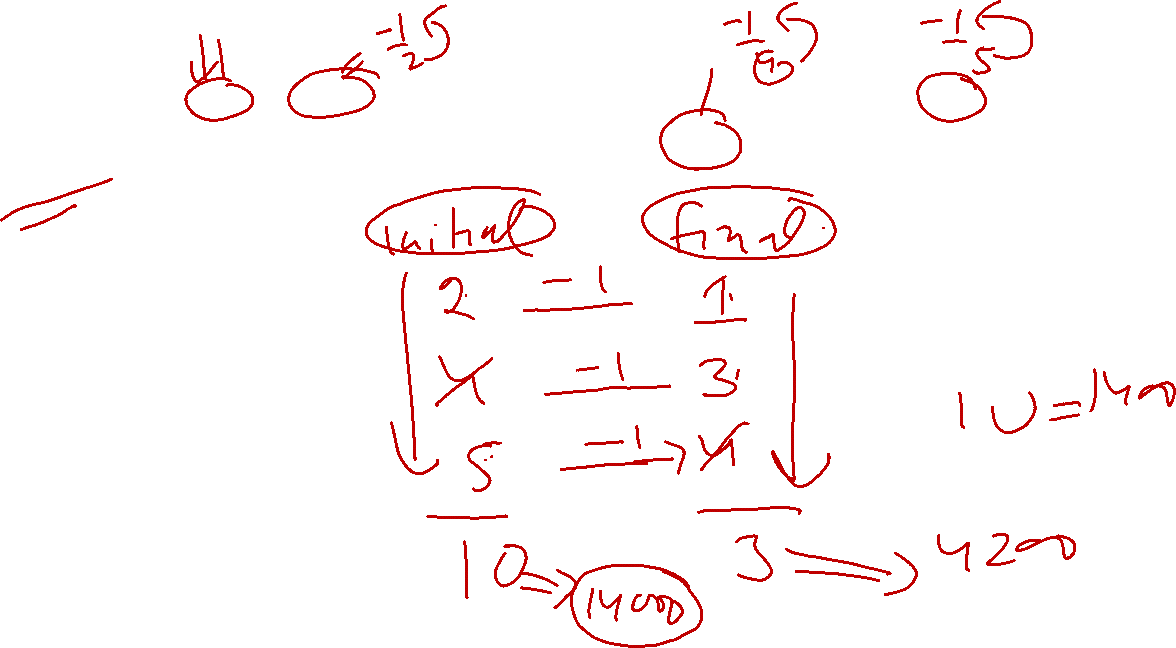 -1/2 -1/4 -1/5
initial final
2 -1 1
4 -1 3
5 -1 4
10 3 4200
14000
1U=1400